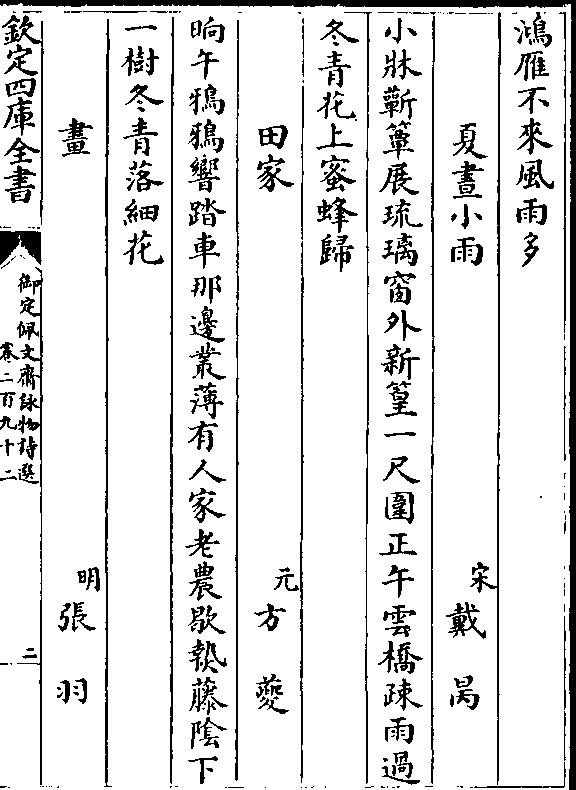 鴻雁不來風雨多
夏晝小雨
宋戴昺
小牀蘄簟展琉璃窗外新篁一尺圍正午雲橋疎雨過
冬青花上蜜蜂歸
田家
元方夔
晌午鵶鴉響踏車那邊叢薄有人家老農歇𤍠藤陰下
一樹冬青落細花
畫
明張羽
欽定四庫全書
御定佩文齋詠物詩選
卷二百九十二
二